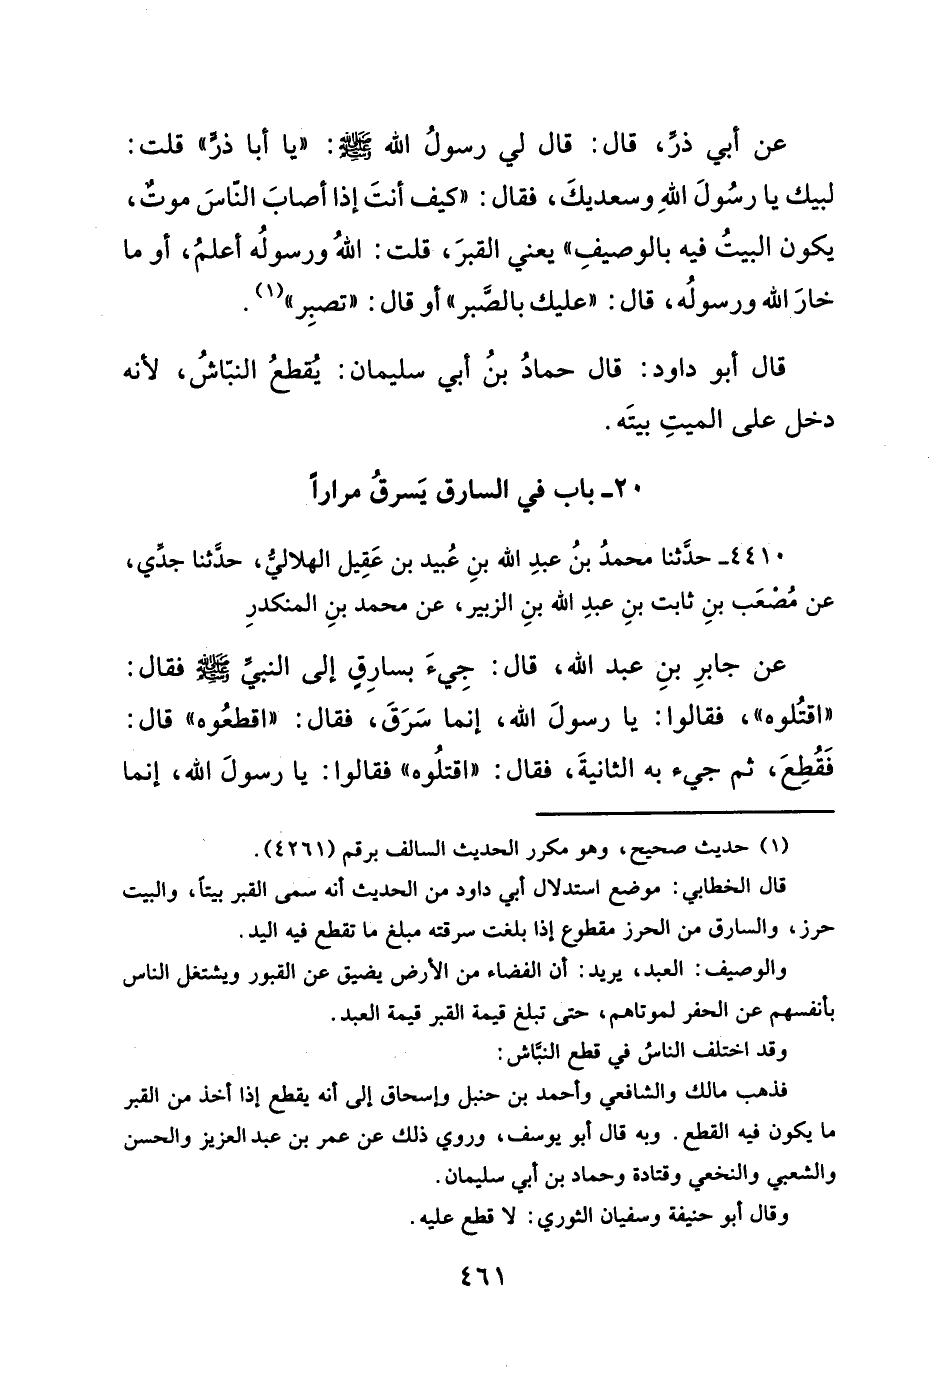 عن أبي ذرٍّ، قال: قال لي رسولُ الله ﷺ: «يا أبا ذرٍّ» قلت:
لبيك يا رسُولَ اللهِ وسعديكَ، فقال: «كيف أنتَ إذا أصابَ النّاسَ موتٌ،
يكون البيتُ فيه بالوصيفِ» يعني القبرَ، قلت: اللهُ ورسولُه أعلمُ، أو ما
خارَ الله ورسولُه، قال: «عليك بالصَّبر» أو قال: «تصبِر»(١).
قال أبو داود: قال حمادُ بنُ أبي سليمان: يُقطعُ النبّاشُ، لأنه
دخل على الميتِ بيتَه.
٢٠ـ باب في السارق يَسرقُ مراراً
٤٤١٠ـ حدَّثنا محمدُ بنُ عبدِ الله بنِ عُبيد بن عَقِيل الهلاليُّ، حدَّثنا جدِّي،
عن مُصْعَب بنِ ثابت بنِ عبدِ الله بنِ الزبير، عن محمد بنِ المنكدرِ
عن جابرِ بنِ عبد الله، قال: جِيءَ بسارِقٍ إلى النبيِّ ﷺ فقال:
«اقتُلوه»، فقالوا: يا رسولَ الله، إنما سَرَقَ، فقال: «اقطعُوه» قال:
فَقُطِعَ، ثم جيء به الثانيةَ، فقال: «اقتلُوه» فقالوا: يا رسولَ الله، إنما
(١) حديث صحيح، وهو مكرر الحديث السالف برقم (٤٢٦١).
قال الخطابي: موضع استدلال أبي داود من الحديث أنه سمى القبر بيتاً، والبيت
حرز، والسارق من الحرز مقطوع إذا بلغت سرقته مبلغ ما تقطع فيه اليد.
والوصيف: العبد، يريد: أن الفضاء من الأرض يضيق عن القبور ويشتغل الناس
بأنفسهم عن الحفر لموتاهم، حتى تبلغ قيمة القبر قيمة العبد.
وقد اختلف الناسُ في قطع النبَّاش:
فذهب مالك والشافعي وأحمد بن حنبل وإسحاق إلى أنه يقطع إذا أخذ من القبر
ما يكون فيه القطع. وبه قال أبو يوسف، وروي ذلك عن عمر بن عبد العزيز والحسن
والشعبي والنخعي وقتادة وحماد بن أبي سليمان.
وقال أبو حنيفة وسفيان الثوري: لا قطع عليه.
٤٦١